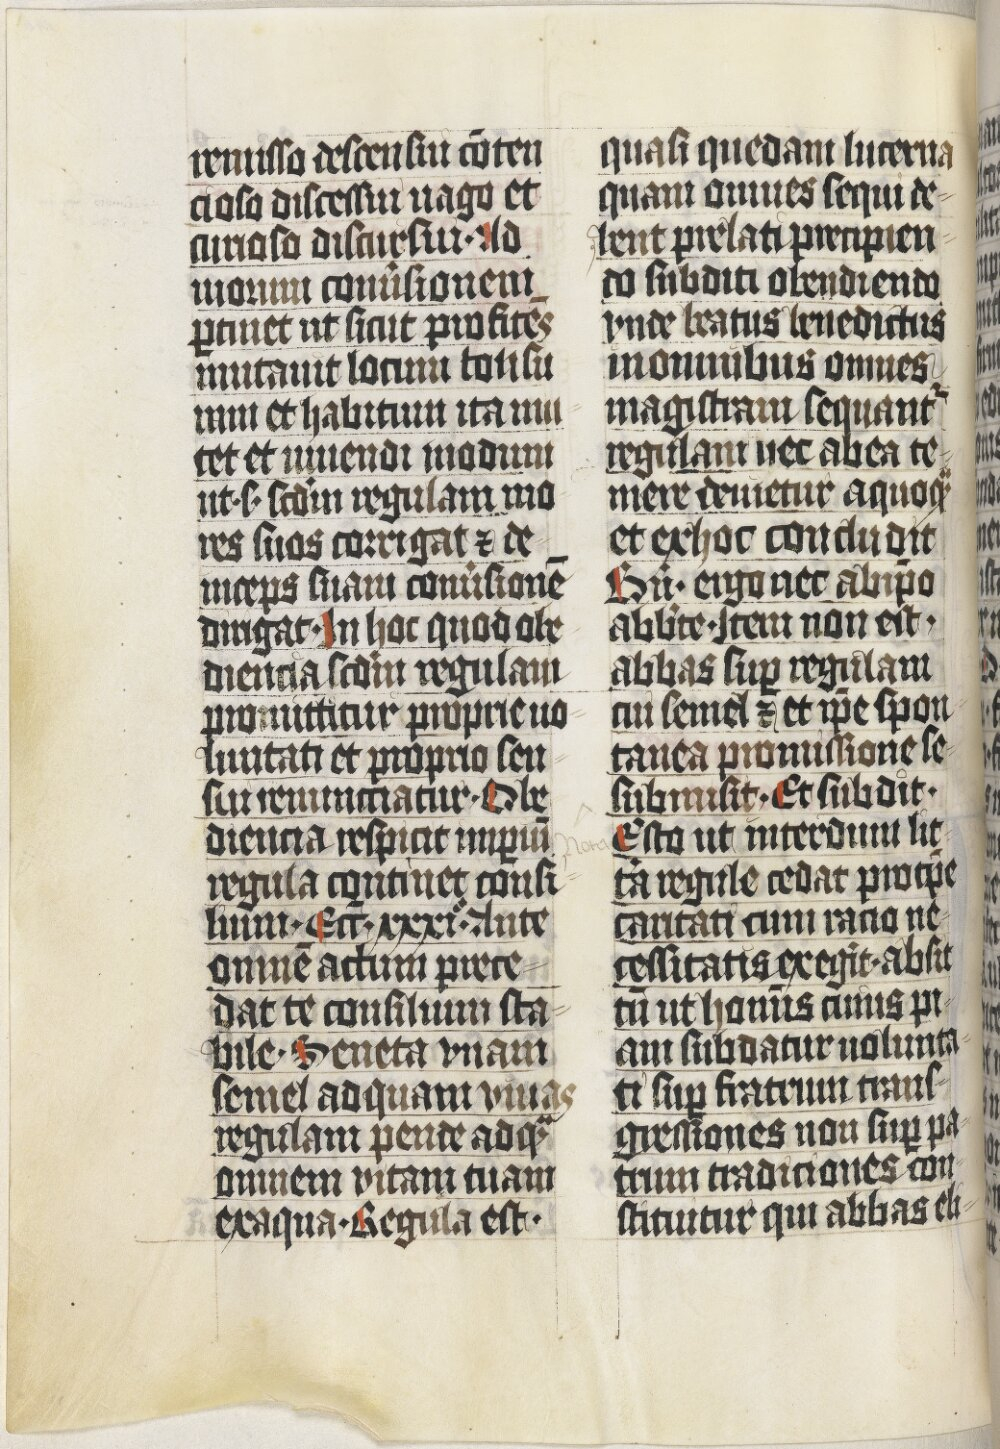 remisso descensui cōten
cioso discessui uago et
curioso discursui. Ad
morum conũsionem
ꝑtinet ut sicut profitēs
mutauit locum tonsu
ram et habitum ita mu
tet et uiuendi modum
ut .s. scđm regulam mo
res suos corrigat ⁊ de
inceps suam conũsionē
dirigat. In hoc quod obe
diencia scđm regulam
promittitur proprie uo
luntati et proprio sen
sui renunciatur. Obe
diencia respicit imꝑiū
regula continet consi
lium. Ecc̄. xxxi. Ante
omnē actum prece
dat te consilium sta
bile. Seneca vnam
semel ad quam viuas
regulam pende ad qᷓ
omnem vitam tuam
exaqua. Regula est.
quasi quedam lucerna
quam omnes sequi de
bent prelati precipien
do subditi obendiendo
vnde beatus benedictus
in omnibus omnes
magistram sequant᷑
regulam nec ab ea te
mere deuietur a quoqᷓ
et ex hoc concludit
ergo nec ab ip̄o
abb̄te. Item non est.
abbas suꝑ regulam
cui semel ⁊ et ip̄e spon
tanea promissione se
submisit. Et subdit.
Esto ut interdum lit
t̄a regule cedat
caritati cum racio ne
cessitatis exegit. absit
tn̄ ut homĩs cuius pi
am subdatur uolunta
ti suꝑ fratrum trans
gressiones non suꝑ pa
trum tradiciones con
stituitur qui abbas eli